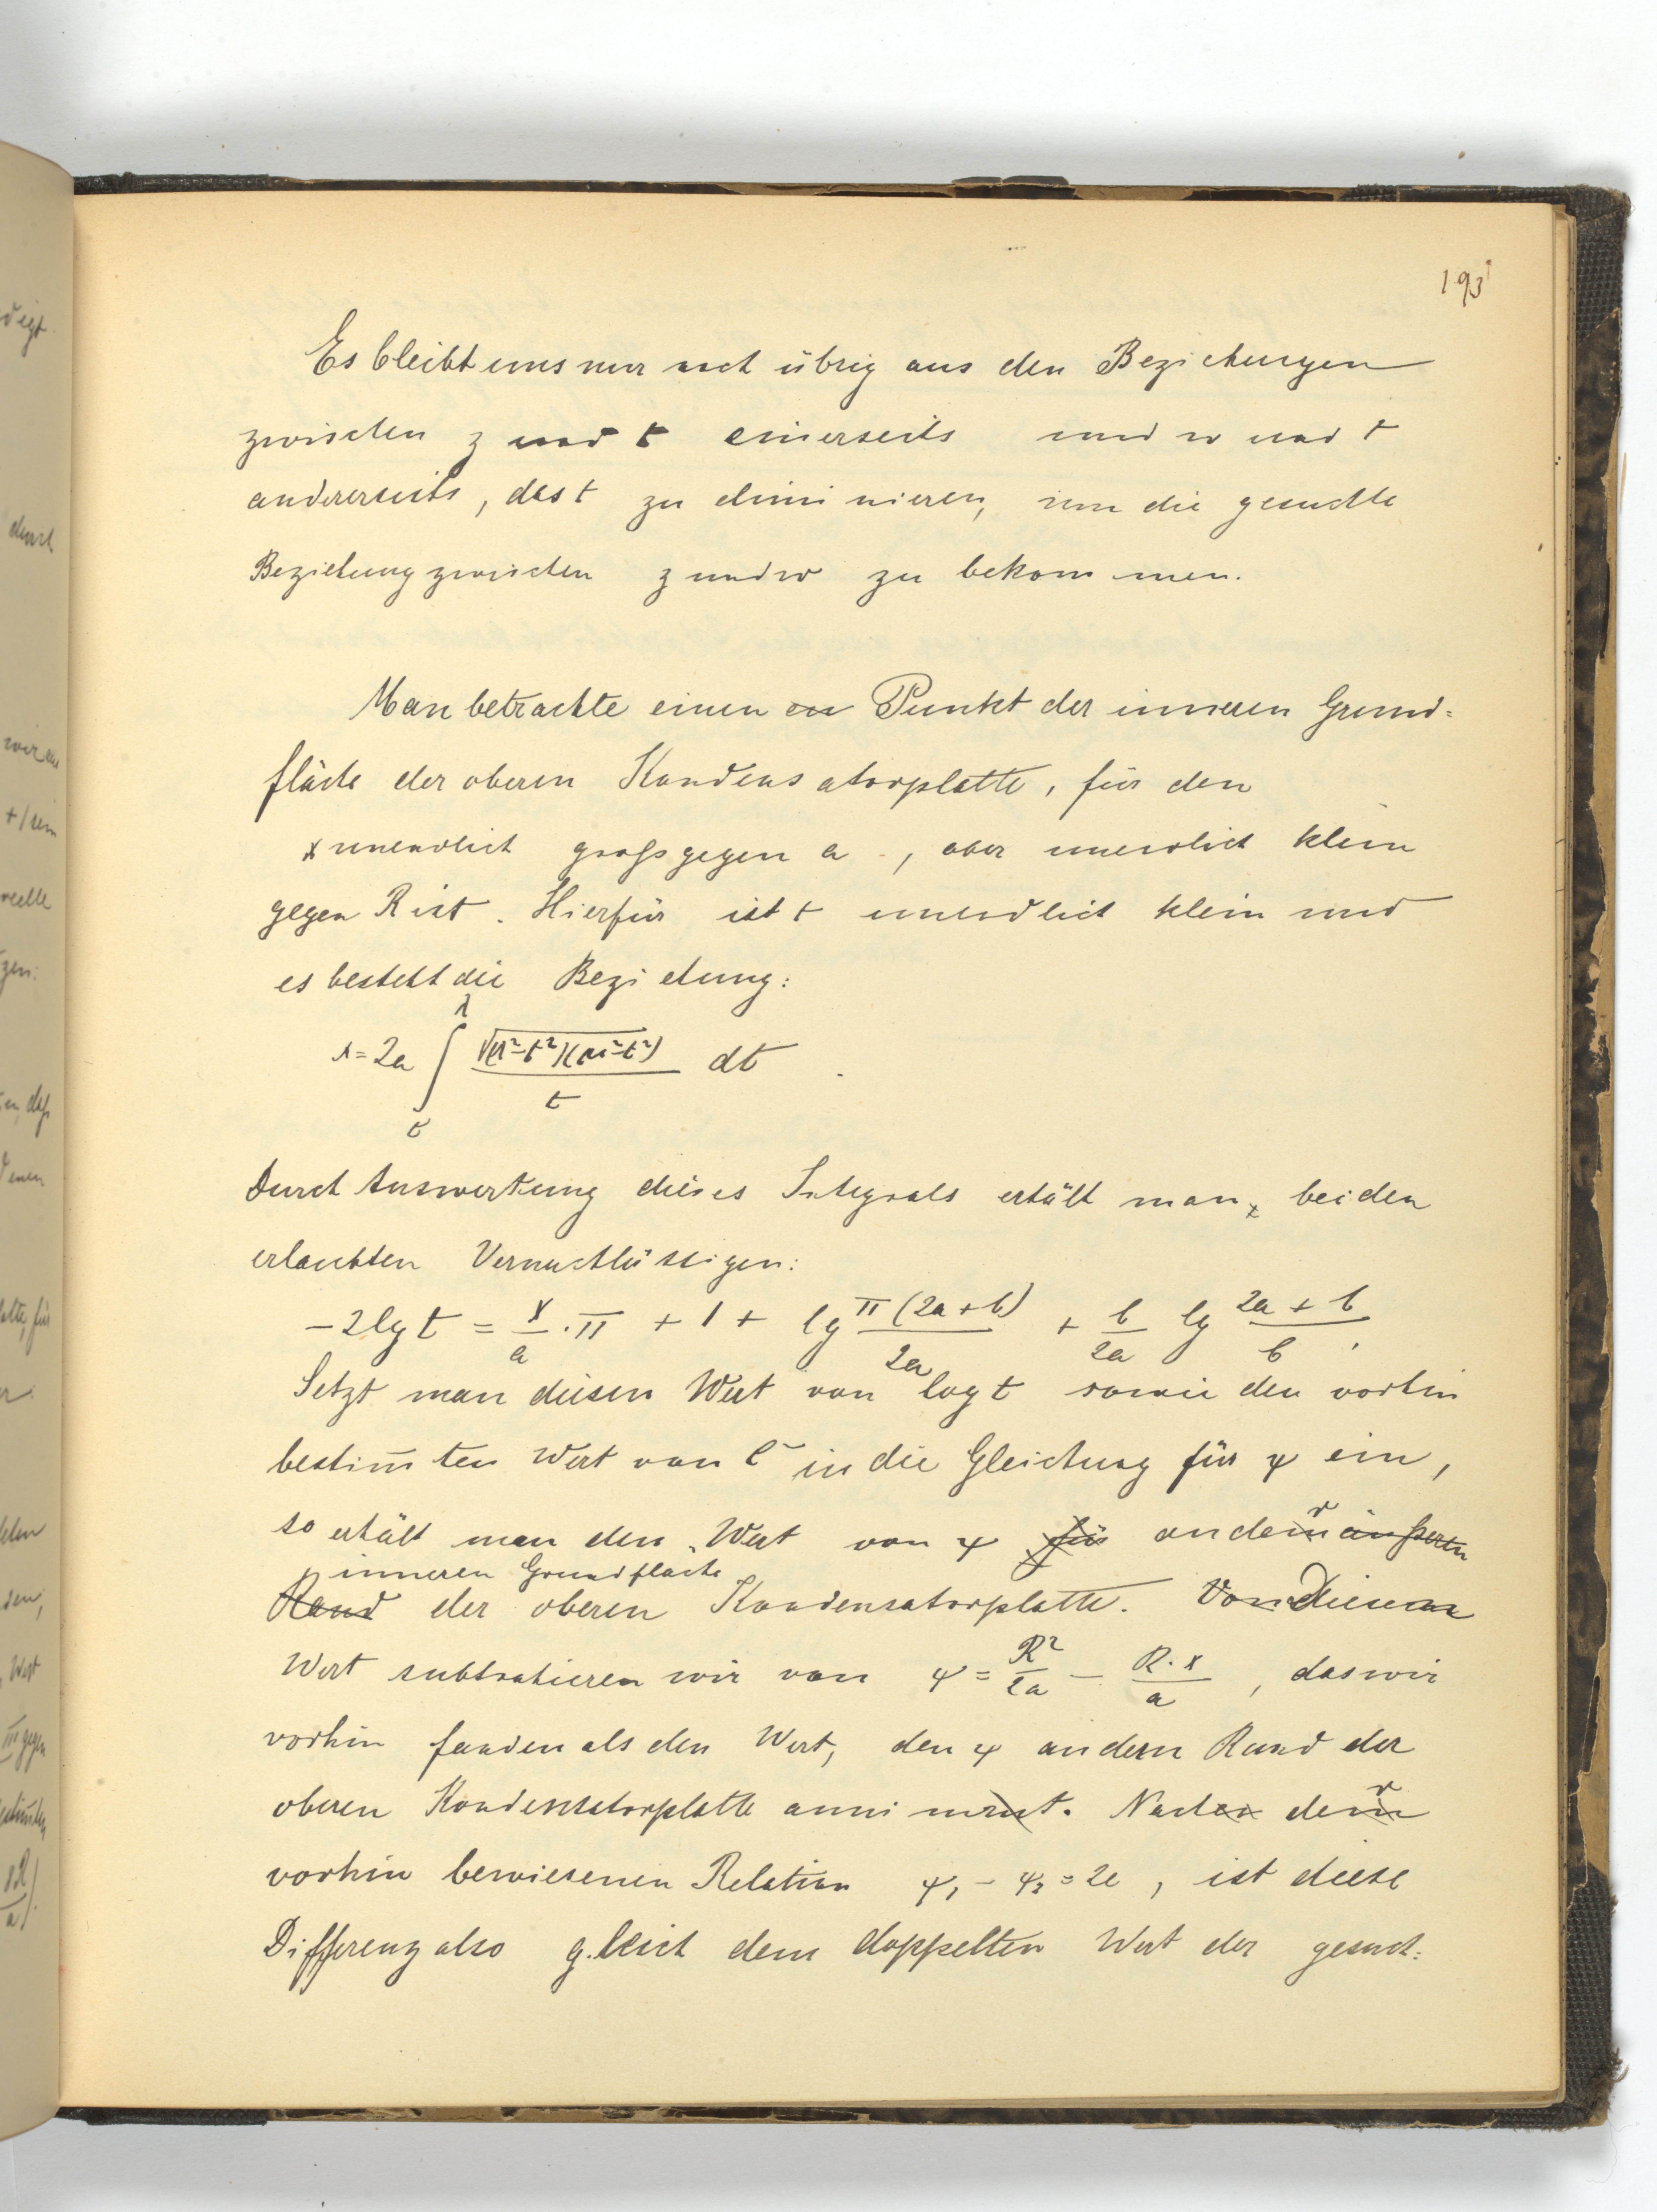 193
Es bleibt uns nur noch übrig aus den Beziehungen
zwischen z und t einerseits und w und t
andererseits, das t zu eliminieren, um die gesuchte
Beziehung zwischen z und w zu bekommen.
Man betrachte einen Punkt der inneren Grund-
fläche der oberen Kondensatorplatte, für den
x unendlich groß gegen a, aber unendlich klein
gegen R ist. Hierfür ist t unendlich klein und
es besteht die Beziehung:
x = 2a ∫ dt
t
Durch Auswertung dieses Integrals erhält man, bei den
erlaubten Vernachlässigen:
-2lg t = x/a · π + 1 + lg π(2a+b)/2a + b/2a lg 2a+b/b,
Setzt man diesen Wert von log t sowie den vorhin
bestim̄ten Wert von C in die Gleichung für ψ ein,
so erhält man den Wert von ψ für an der äußeren
inneren Grundfläche
Rand der oberen Kondensatorplatte. Von Diesem
Wert subtrahieren wir von ψ = R²/2a - R·x/a, das wir
vorhin fanden als den Wert, den ψ an dern Rand der
oberen Kondensatorplatte annimmt. Nach der
vorhin bewiesenen Relation ψ₁ - ψ₂ = 2e, ist diese
Differenz also gleich dem doppelten Wert der gesuch-